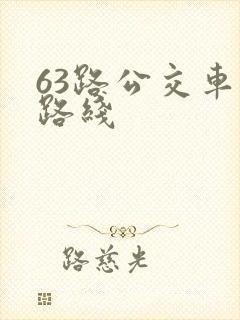 63路公交车
路线
路慈光